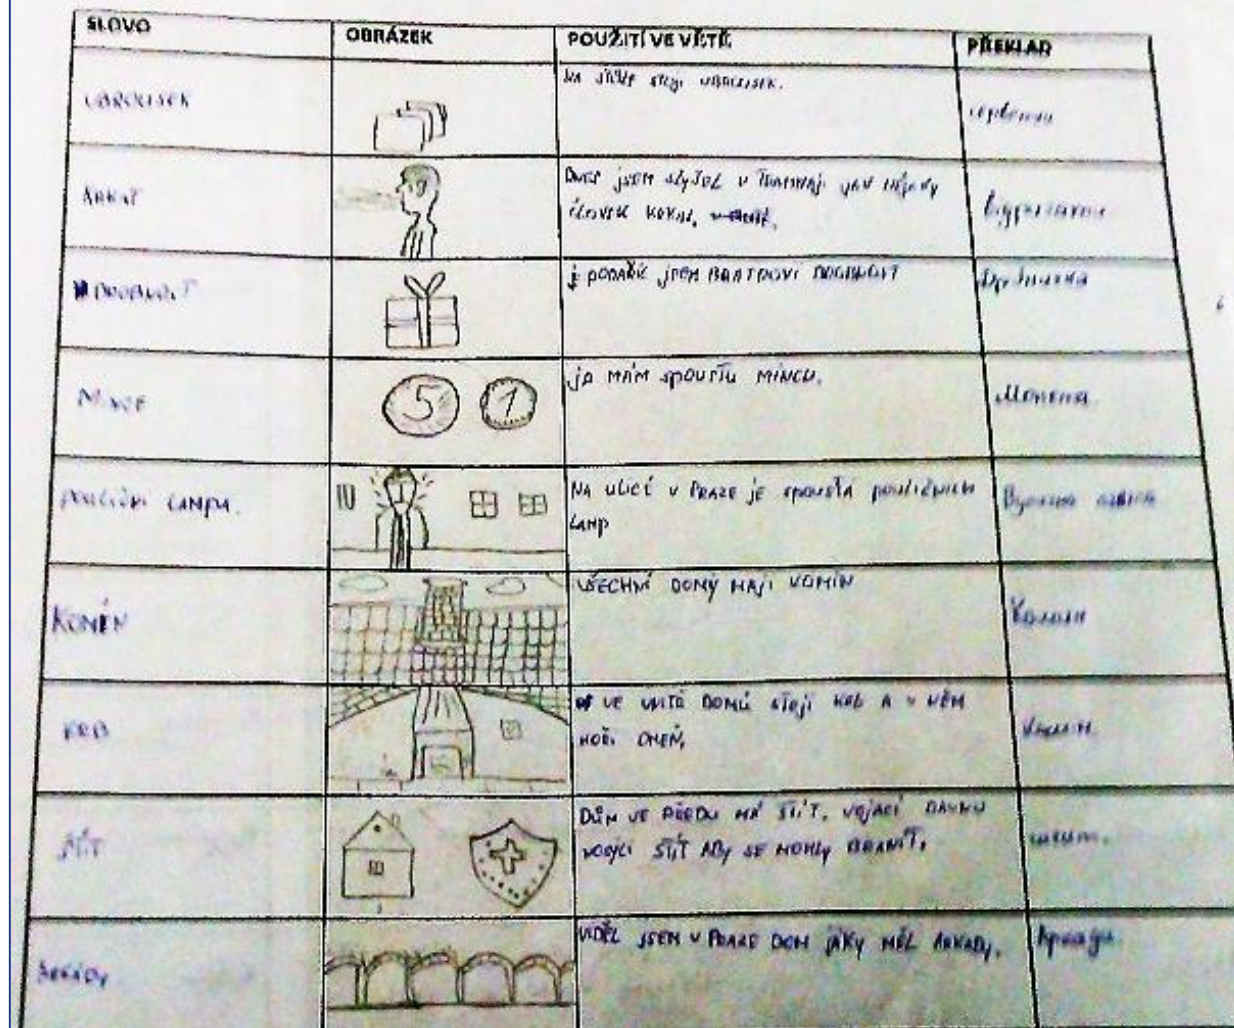 SLOVO
OBRÁZEK
POUŽITÍ VE VĚTĚ
PŘEKLAD
UBROUSEK
NA stole stojí UBROUSEK.
JSEM slyšel v TRAMVAJI jak nějaký
člověk KOKAL,
DROBNOST
PODAŘIL jsem BRATROVI DROBNOST
MINCE
5 1
já MÁM SPOUSTU MINCŮ.
Монета
pouliční LAMPA.
NA ulicí v PRAZE je spousta pouličních
LAMP
KOMÉN
VŠECHNÍ DOMY MAJÍ KOMÍN
Камин
KRB
VE DOMŮ stojí KRB A v NĚM
HOŘÍ OHEŇ,
ŠTÍT
DŮM VE PŘEDU MÁ ŠTÍT. VOJACÍ DAVNU
ŠTÍT ABY SE MOHLY BRANÍT.
щит.
ARKÁDY
VIDĚL JSEM V PRAZE DOM JÁKY MĚL ARKADY.